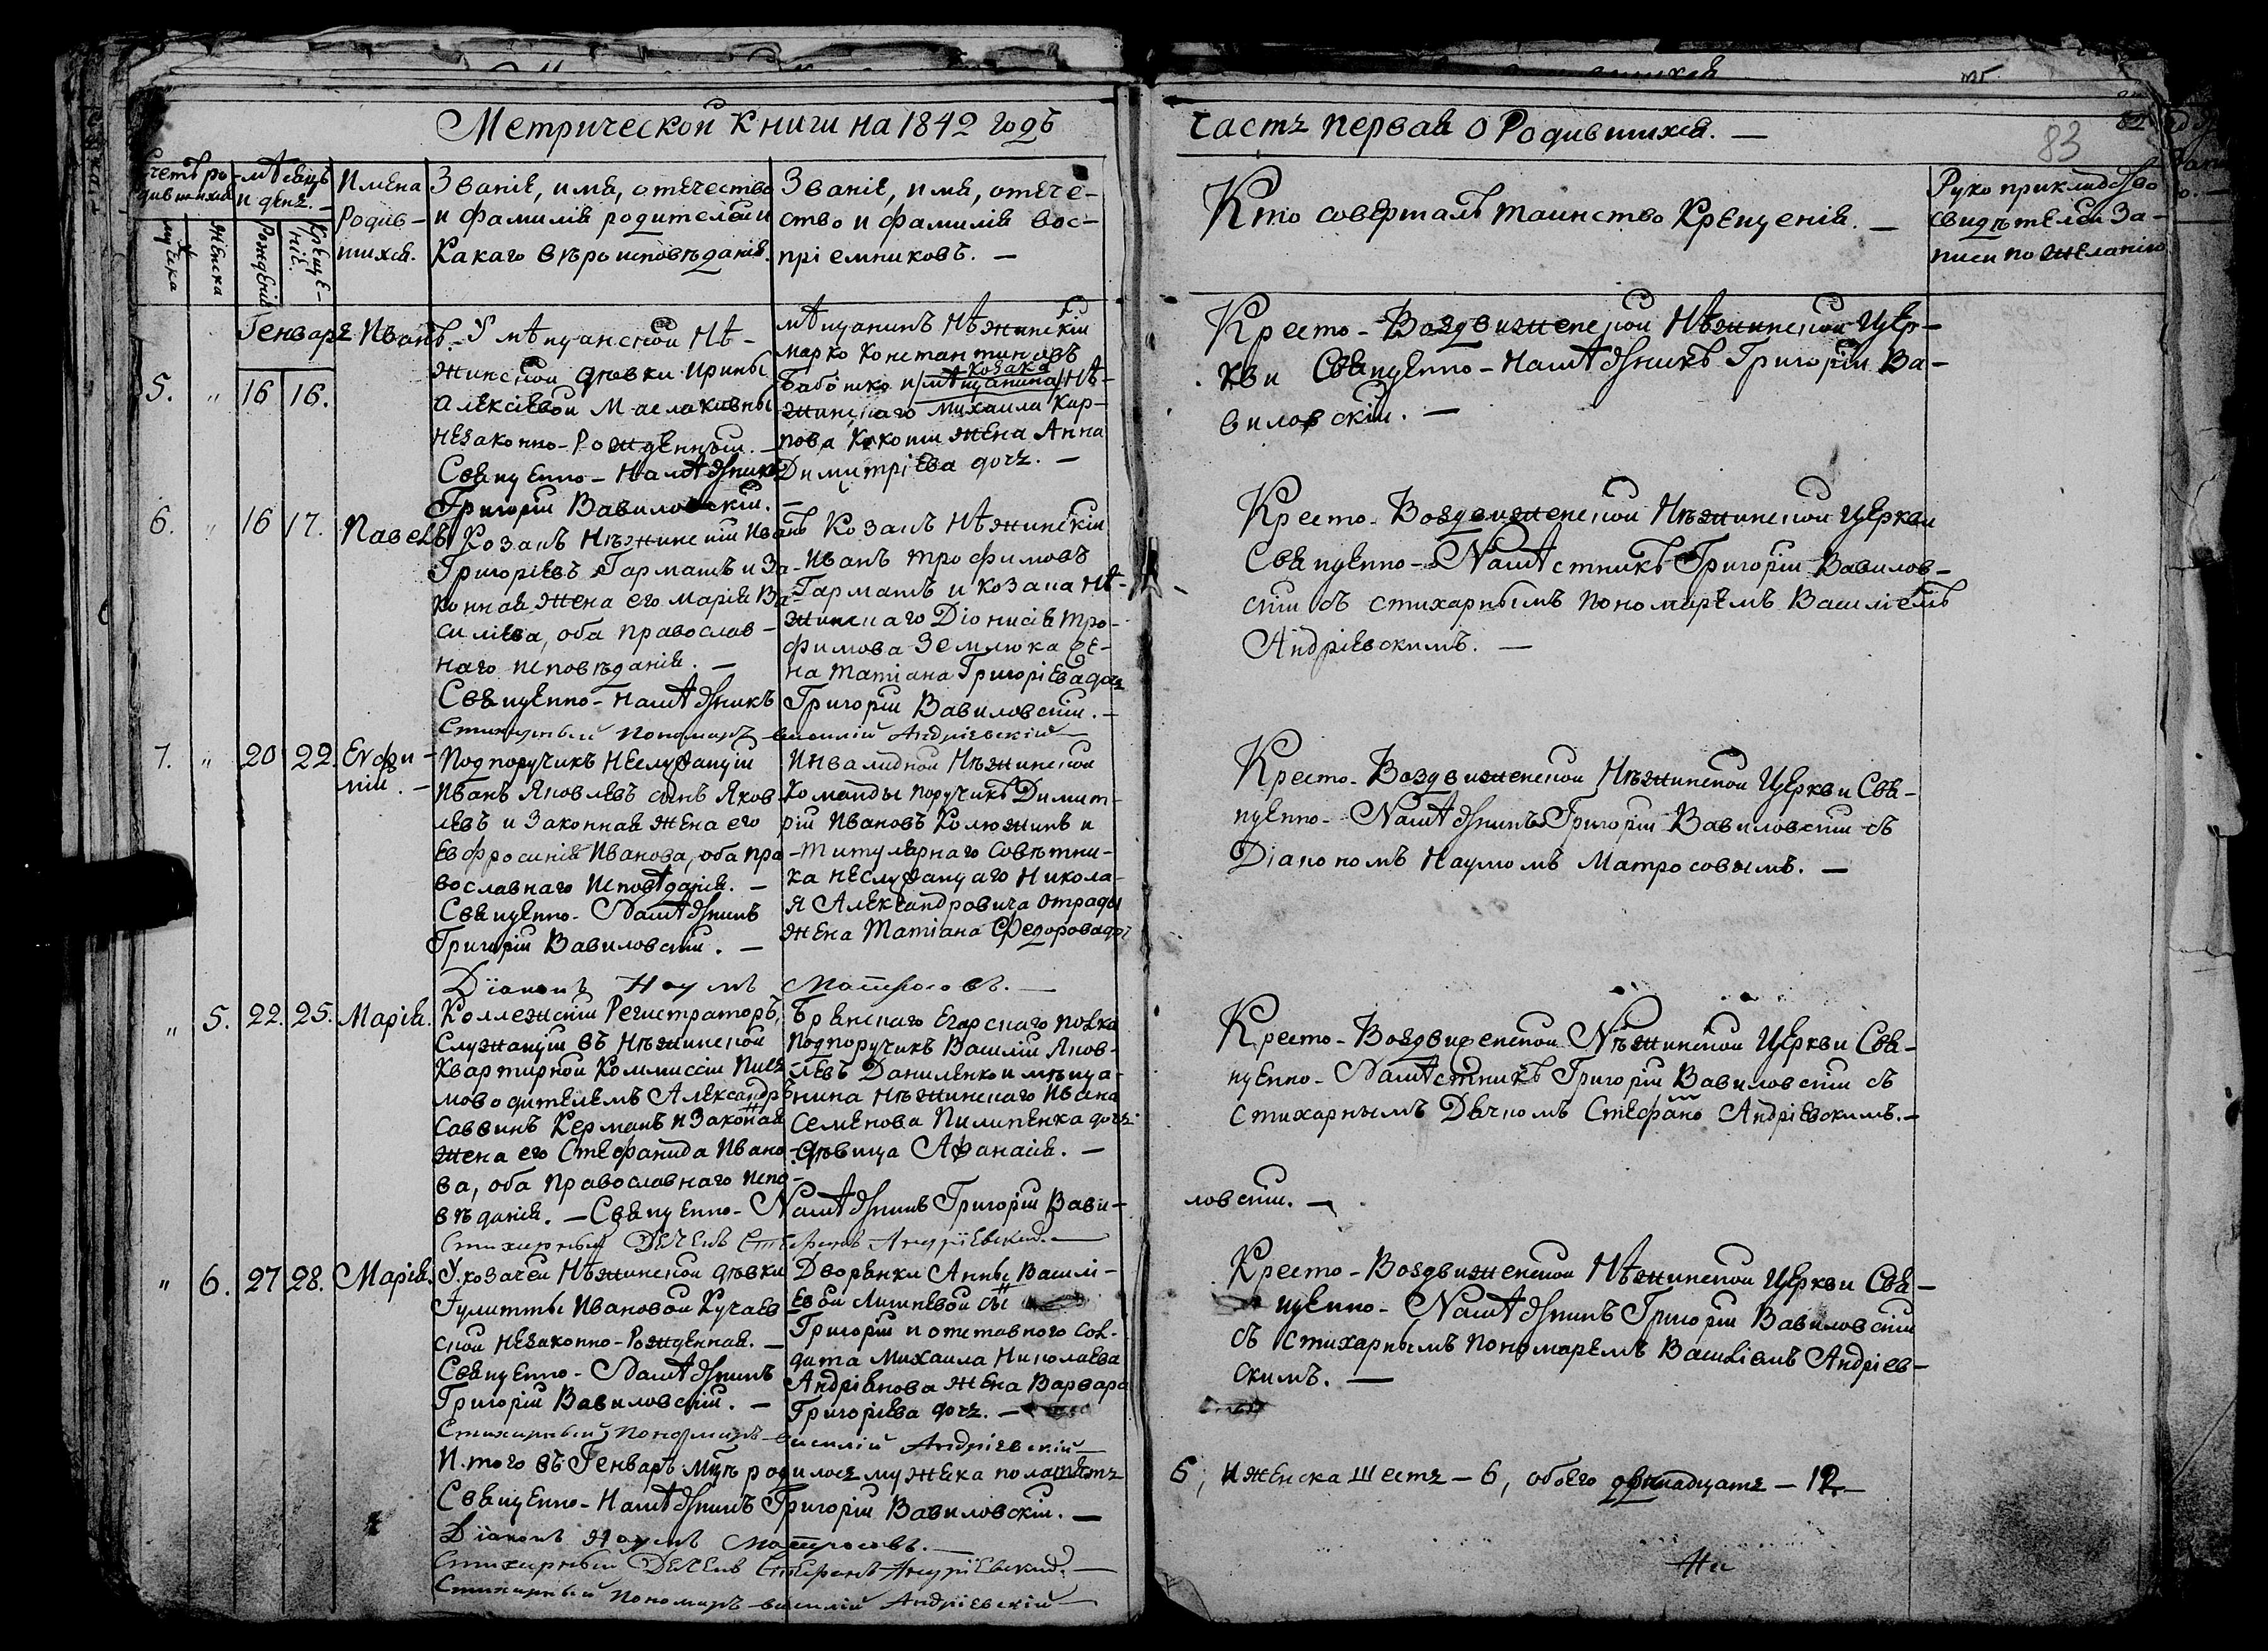 Метрической Книги на 1842 годъ
Часть первая о Родившихся. —
83
Счетъ ро-
дившихся
мужеска
женска
Мѣсяцъ
и день.
Рожденія
Креще-
ніе.
Имена
Родив-
шихся.
Званіе, имя, отечество
и фамилія родителей и
Какаго вѣроисповѣданія.
Званіе, имя, отече-
ство и фамилія вос-
пріемниковъ. —
Кто совершалъ таинство Крещенія. —
Рукоприкладство
свидѣтелей за-
писи по желанію
Генварь
5. „ 16 16. Иванъ.
У мѣщанской Нѣ-
жинской дѣвки Ирины
Алексіевой Маслаковны
незаконно-Рожденный. —
Священно-Намѣстникъ
Григорій Вавиловскій. —
Мѣщанинъ Нѣжинскій
Марко Константиновъ
козака
Бабошко и /мѣщанина/ Нѣ-
жинскаго Михаила Кар-
пова Кокоши жена Анна
Димитріева дочь. —
Кресто-Воздвиженской Нѣжинской Цер-
кви Священно-Намѣстникъ Григорій Ва-
виловскій. —
6. „ 16 17. Павелъ
Козакъ Нѣжинскій Иванъ
Григоріевъ Гармашъ и За-
конная жена его Марія Ва-
силіева, оба православ-
наго исповѣданія. —
Священно-Намѣстникъ Григорій Вавиловскій. —
Стихарный Пономарь Василій Андріевскій —
Козакъ Нѣжинскій
Иванъ Трофимовъ
Гармашъ и козака Нѣ-
жинскаго Діонисія Тро-
фимова Землюка же-
на Татіана Григоріева дочь
Кресто-Воздвиженской Нѣжинской Церкви
Священно-Намѣстникъ Григорій Вавилов-
скій съ стихарнымъ Пономаремъ Василіемъ
Андріевскимъ. —
7. „ 20 22. Евфи-
мій. —
Подпоручикъ Неслужащій
Иванъ Яковлевъ сынъ Яков-
левъ и Законная жена его
Евфросинія Иванова, оба пра-
вославнаго Исповѣданія. —
Священно-Намѣстникъ
Григорій Вавиловскій. —
Діаконъ Наумъ Матросовъ. —
Инвалидной Нѣжинской
Команды поручикъ Димит-
рій Ивановъ Колюжинъ и
Титулярнаго Совѣтни-
ка неслужащаго Никола-
я Александровича Отрады
жена Татіана Федорова до
Кресто-Воздвиженской Нѣжинской Церкви Свя-
щенно-Намѣстникъ Григорій Вавиловскій съ
Діакономъ Наумомъ Матросовымъ. —
„ 5. 22. 25. Марія.
Коллежскій Регистраторъ,
Служащій въ Нѣжинской
Квартирной Коммиссіи Пись-
моводителемъ Александръ
Саввинъ Керманъ и Законная
жена его Стефанида Ивано-
ва, оба Православнаго испо-
вѣданія. — Священно-Намѣстникъ Григорій Вави-
ловскій. —
Стихарный Дьячекъ Стефанъ Андріевскій. —
Брянскаго Егарскаго полка
Подпоручикъ Василій Яков-
левъ Даниленко и мѣща-
нина Нѣжинскаго Ивана
Семенова Пилипенка дочь
дѣвица Афанасія. —
Кресто-Воздвиженской Нѣжинской Церкви Свя-
щенно-Намѣстникъ Григорій Вавиловскій съ
стихарнымъ Дьячкомъ Стефаномъ Андріевскимъ. —
„ 6. 27 28. Марія.
У козачей Нѣжинской дѣвки
Іулитты Ивановой Кучаев-
ской незаконно-Рожденная. —
Священно-Намѣстникъ
Григорій Вавиловскій. —
Стихарный Пономарь Василій Андріевскій —
Дворянки Анны Василі-
евой Лишневой сы
Григорій и отставного Сол-
дата Михаила Николаева
Андріянова жена Варвара
Григоріева дочь. —
Кресто-Воздвиженской Нѣжинской Церкви Свя-
щенно-Намѣстникъ Григорій Вавиловскій
съ Стихарнымъ Пономаремъ Василіемъ Андріев-
скимъ. —
И того въ Генварѣ Мцѣ родилось мужеска пола шесть
6, и женска шесть — 6, обоего двѣнадцать — 12. —
Священно-Намѣстникъ Григорій Вавиловскій. —
Діаконъ Наумъ Матросовъ. —
Стихарный Дьячекъ Стефанъ Андріевскій. —
Стихарный Пономарь Василій Андріевскій —